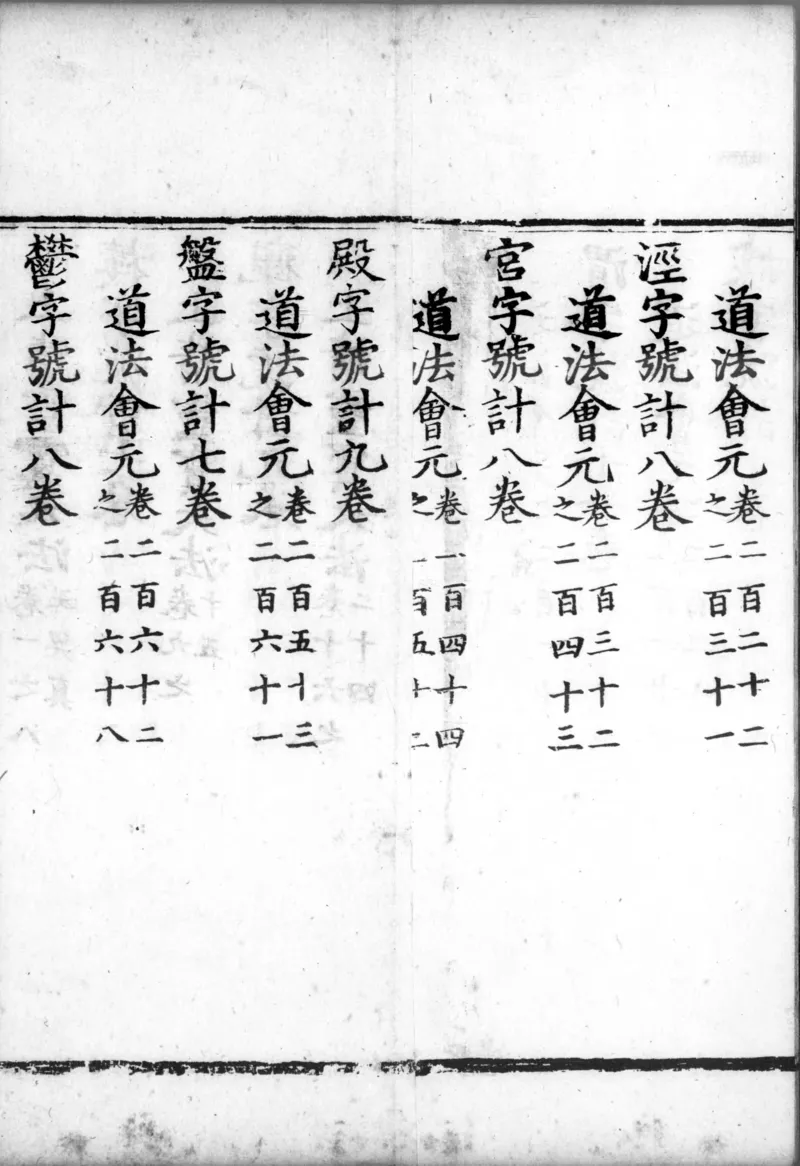 道法會元卷二百二十二之二百三十一
涇字號計八卷
道法會元卷二百三十二之二百四十三
宮字號計八卷
道法會元卷一百四十四之一百五十二
殿字號計九卷
道法會元卷二百五十三之二百六十一
盤字號計七卷
道法會元卷二百六十二之二百六十八
鬱字號計八卷